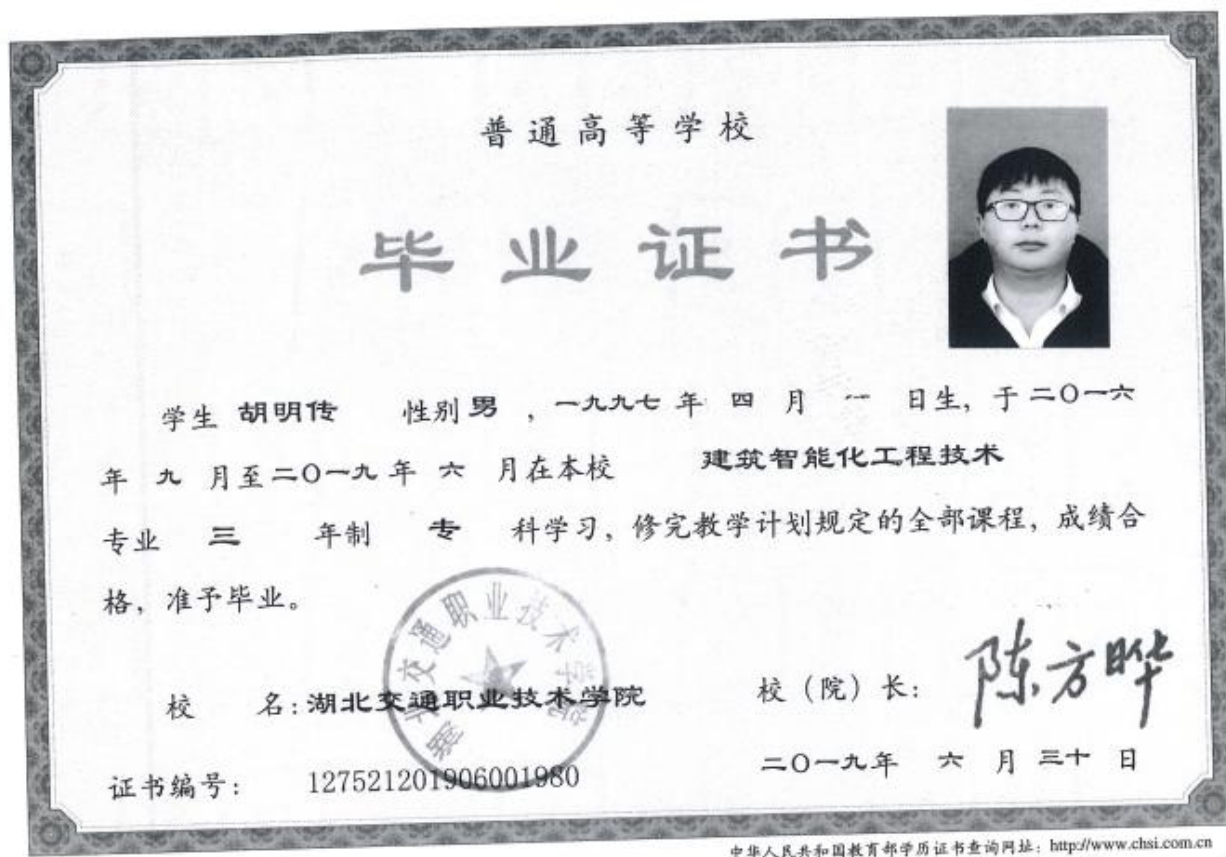 普通高等学校
毕业证书
学生 胡明传 性别 男 ,一九九七 年 四 月 一 日生, 于 二〇一六
年 九 月至 二〇一九 年 六 月在本校 建筑智能化工程技术
专业 三 年制 专 科学习, 修完教学计划规定的全部课程, 成绩合
格, 准予毕业。
湖北交通职业技术学院
校 名: 湖北交通职业技术学院
校(院)长: 陈方晔
证书编号: 127521201906001980
二〇一九年 六 月 三十 日
中华人民共和国教育部学历证书查询网址: http://www.chsi.com.cn